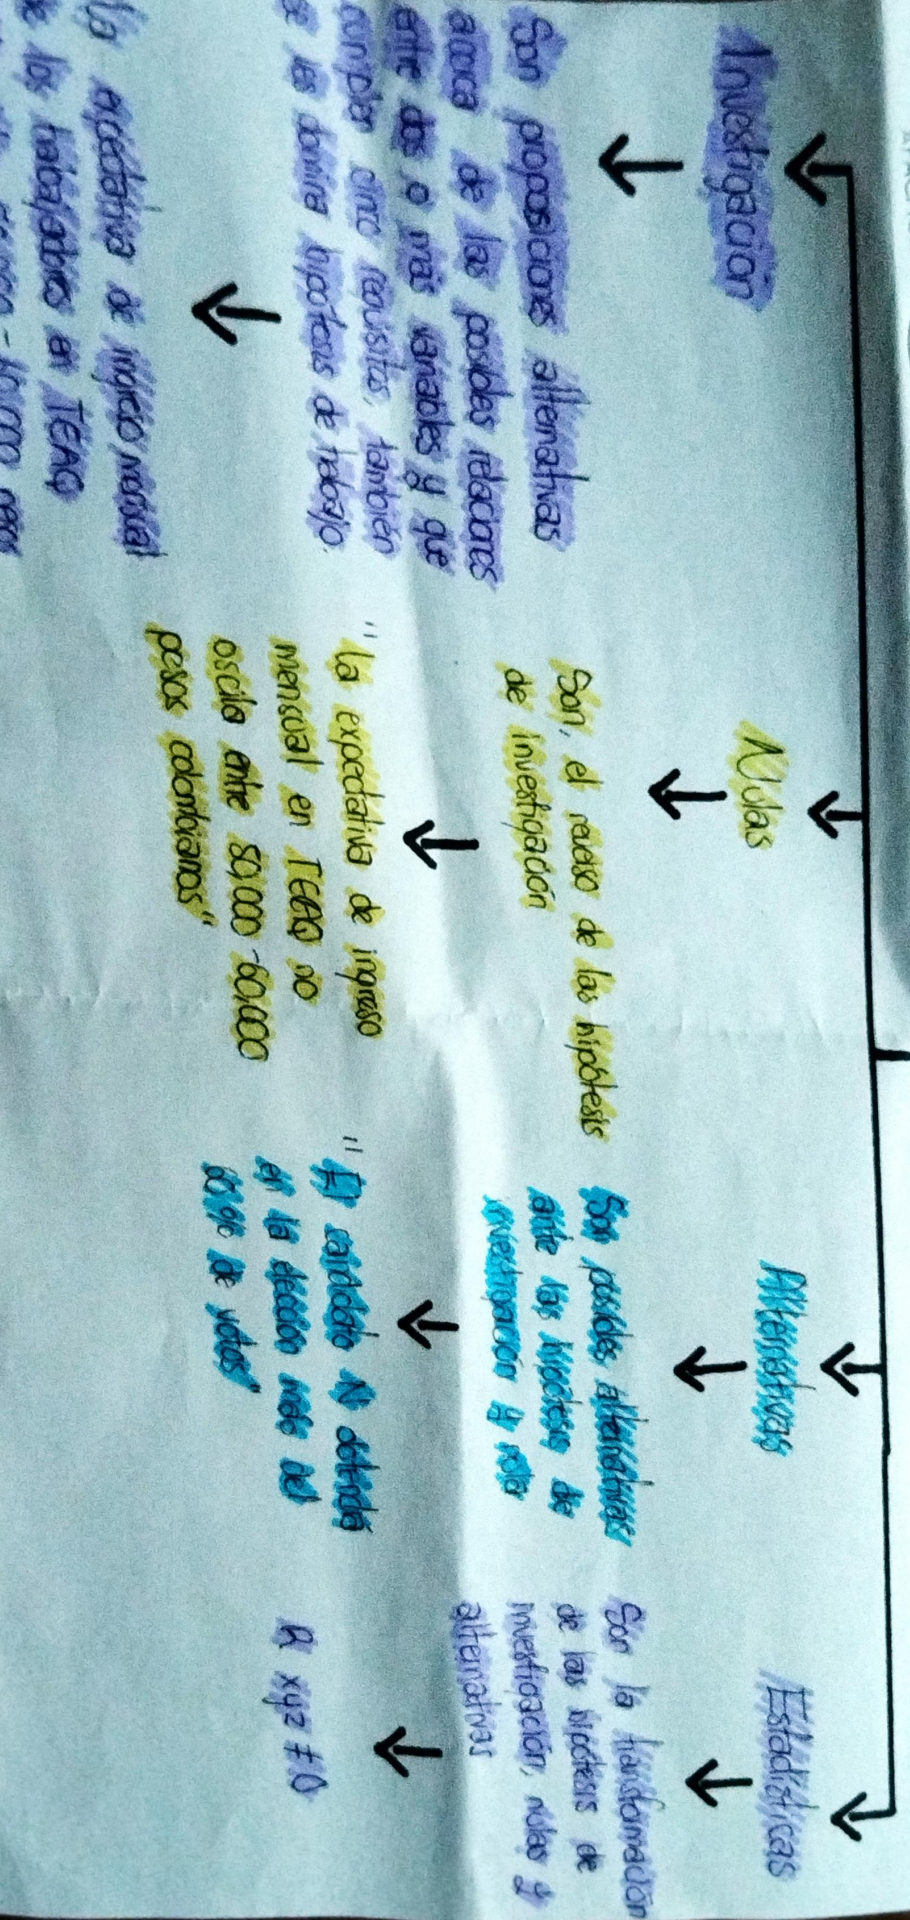 Investigación
Son proposiciones alternativas
acerca de las posibles relaciones
entre dos o más variables y que
cumplen cinco requisitos, también
se les domina hipótesis de trabajo.
La expectativa de ingreso mensual
de los trabajadores en TEAG
Nulas
Son, el reverso de las hipótesis
de investigación
"La expectativa de ingreso
mensual en TEGG no
oscila entre 50,000-60,000
pesos colombianos"
Alternativas
Son posibles alternativas
ante las hipótesis de
investigación y nula
"El candidato N obtendrá
en la elección más del
60% de votos"
Estadísticas
Son la transformación
de las hipótesis de
investigación, nulas y
alternativas
R xyz ≠ 0